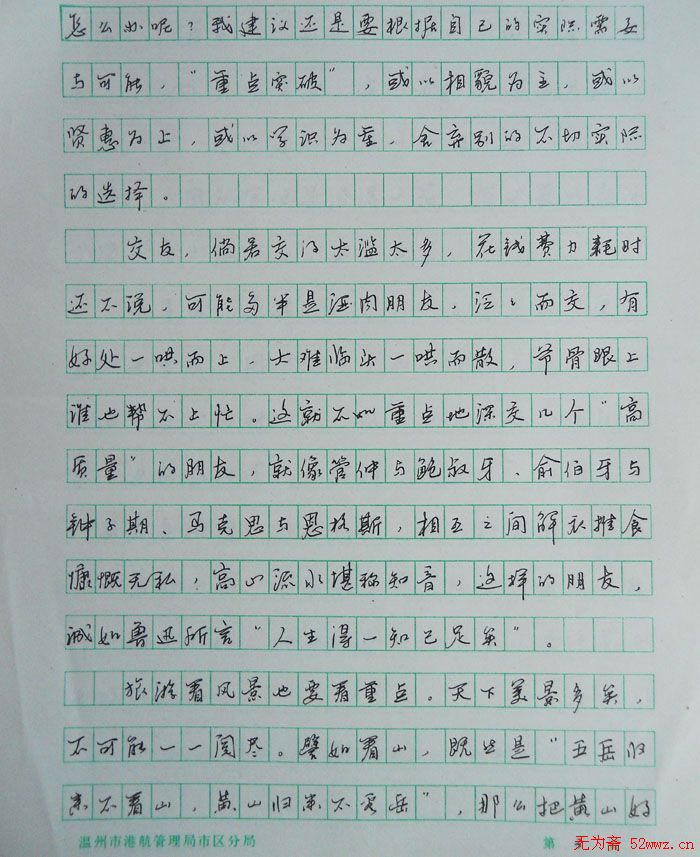 怎么办呢？我建议还是要根据自己的实际需要
与可能，“重点突破”，或以相貌为主，或以
贤惠为上，或以学识为重，舍弃别的不切实际
的选择。
交友，倘若交得太滥太多，花钱费力耗时
还不说，可能多半是酒肉朋友，泛泛而交，有
好处一哄而上，大难临头一哄而散，节骨眼上
谁也帮不上忙。这就不如重点地深交几个“高
质量”的朋友，就像管仲与鲍叔牙、俞伯牙与
钟子期、马克思与恩格斯，相互之间解衣推食
慷慨无私，高山流水堪称知音，这样的朋友，
诚如鲁迅所言“人生得一知己足矣”。
旅游看风景也要看重点。天下美景多矣，
不可能一一阅尽。譬如看山，既然是“五岳归
来不看山，黄山归来不看岳”，那么把黄山好
温州市港航管理局市区分局
第
无为斋 52wwz.cn